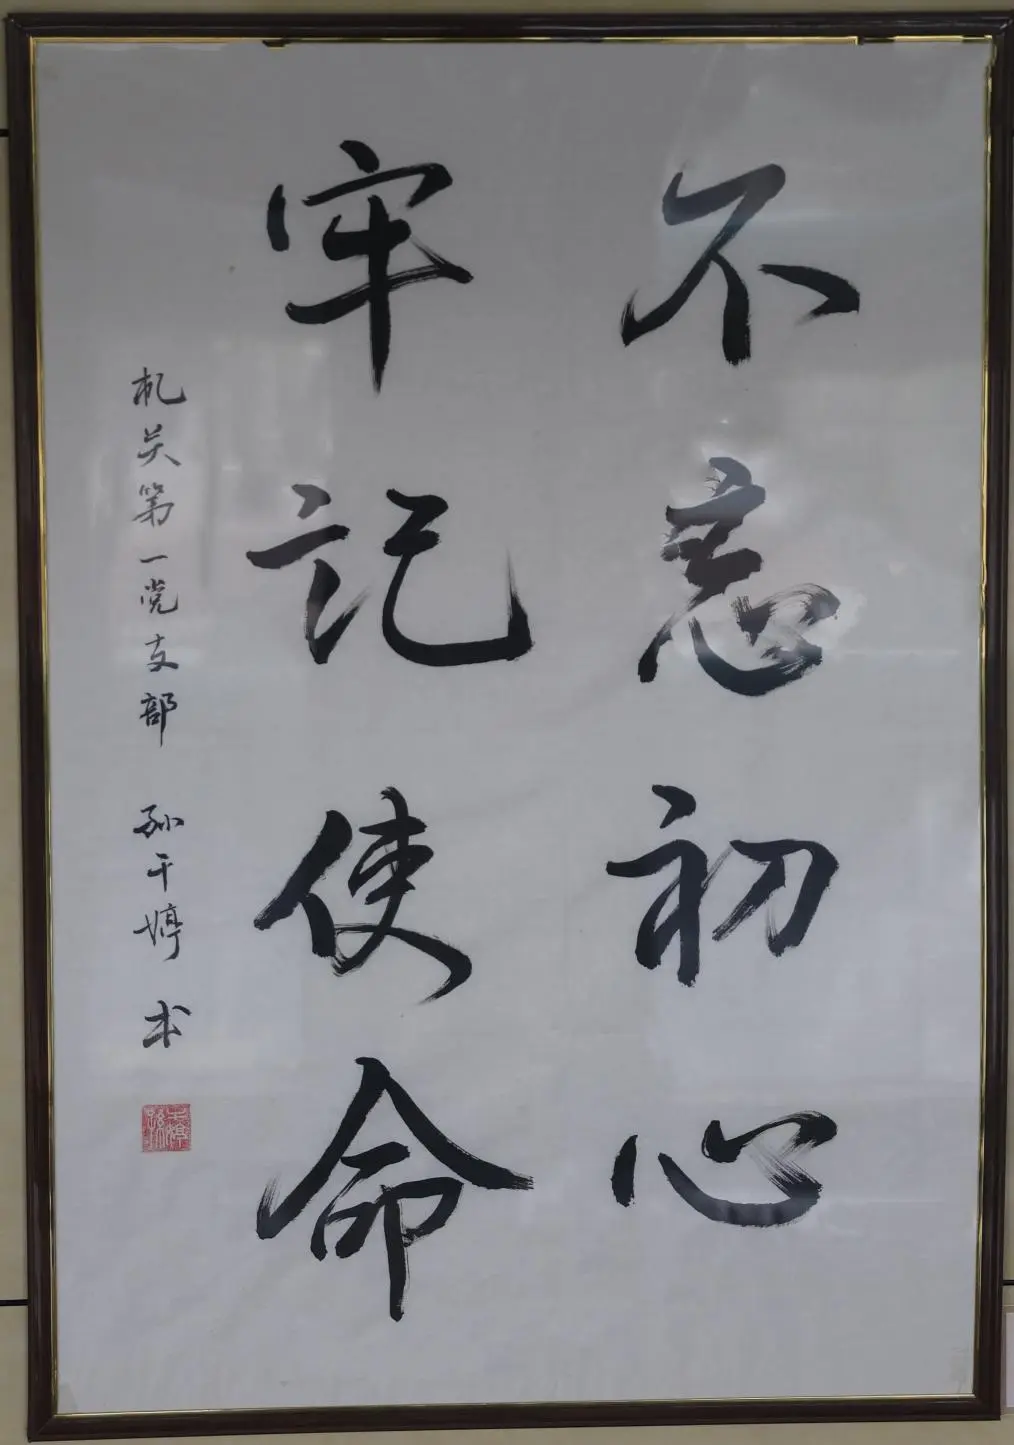 不忘初心
牢记使命
机关第一党支部 孙千婷 书